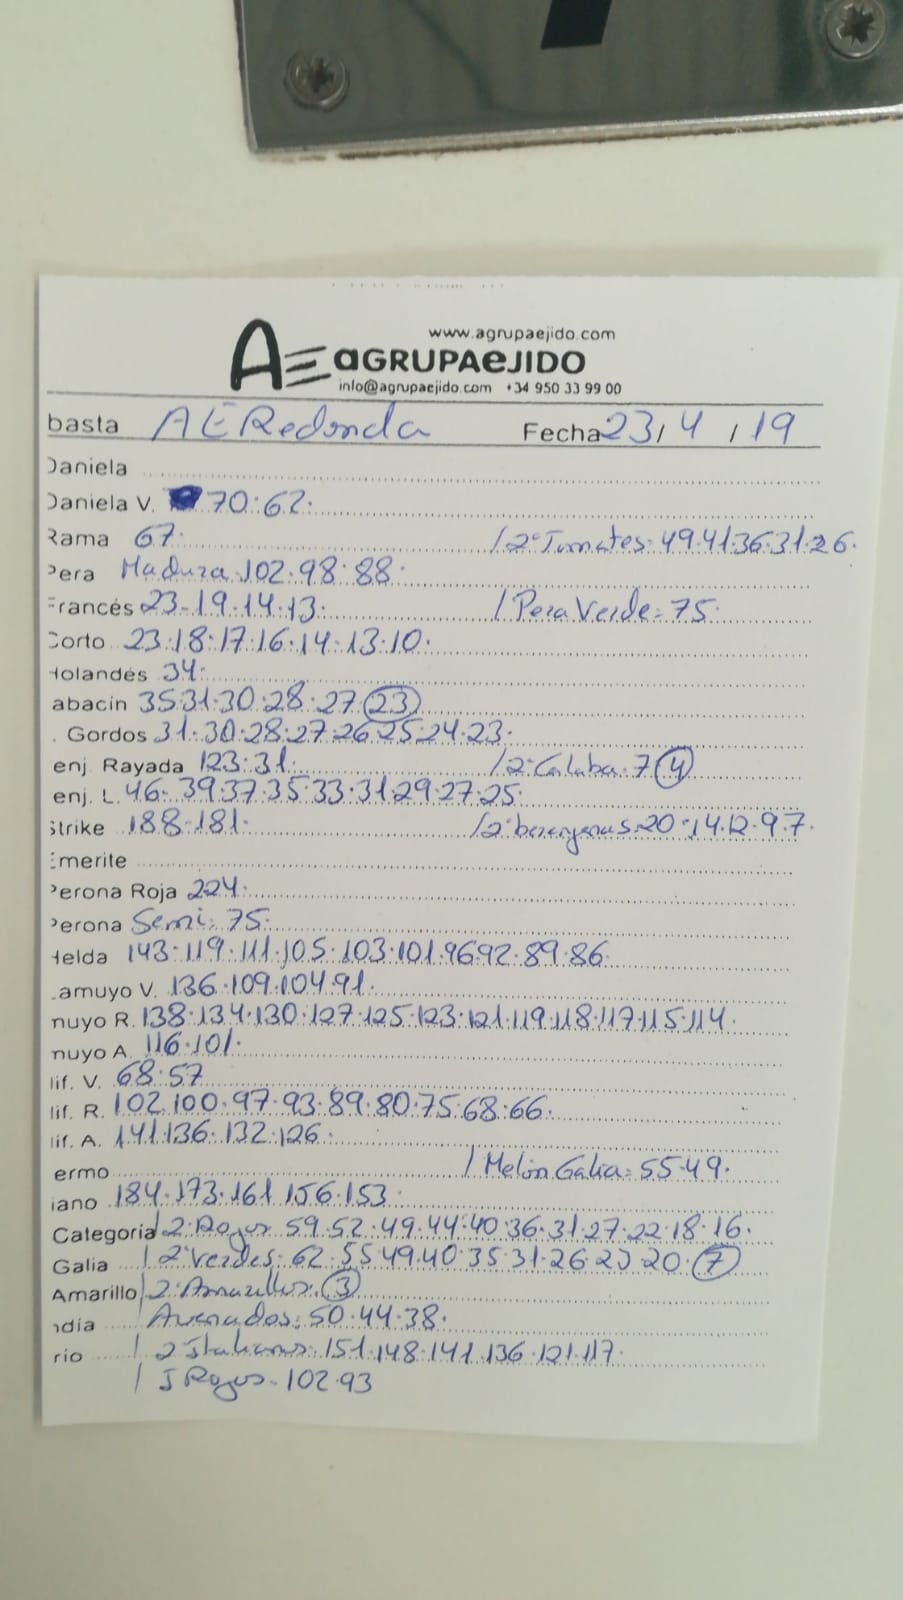 www.agrupaejido.com
AE aGRUPAeJIDO
info@agrupaejido.com +34 950 33 99 00
basta AE Redonda Fecha 23/4/19
Daniela
Daniela V. 70.62.
Rama 67. /2ª Tomates: 49.41.36.31.26.
Pera Madura 102.98.88.
Francés 23-19.14.13. /Pera Verde: 75.
Corto 23.18.17.16.14.13.10.
Holandés 34.
abacín 35.31.30.28.27.23
. Gordos 31.30.28.27.26.25.24.23.
enj. Rayada 123.31. /2ª Calaba. 7 4
enj. L. 46.39.37.35.33.31.29.27.25.
Strike 188-181. /2ª berenjenas 20.14.12.9.7.
Emerite
Perona Roja 224.
Perona Semi: 75.
Helda 143.119.111.105.103.101.96.92.89.86.
Lamuyo V. 136.109.104.91.
muyo R. 138.134.130.127.125.123.121.119.118.117.115.114.
muyo A. 116.101.
lif. V. 68.57
lif. R. 102.100.97.93.89.80.75.68.66.
lif. A. 141.136.132.126.
ermo /Melón Galia: 55.49.
iano 184.173.161.156.153.
Categoría /2ª Rojos 59.52.49.44.40.36.31.27.22.18.16.
Galia /2ª Verdes: 62.55.49.40.35.31.26.23.20.7
Amarillo /2ª Amarillos: 3
ndía Asurados: 50.44.38.
rio /2ª Italianos: 151.148.141.136.121.117.
/ J Rojos- 102.93